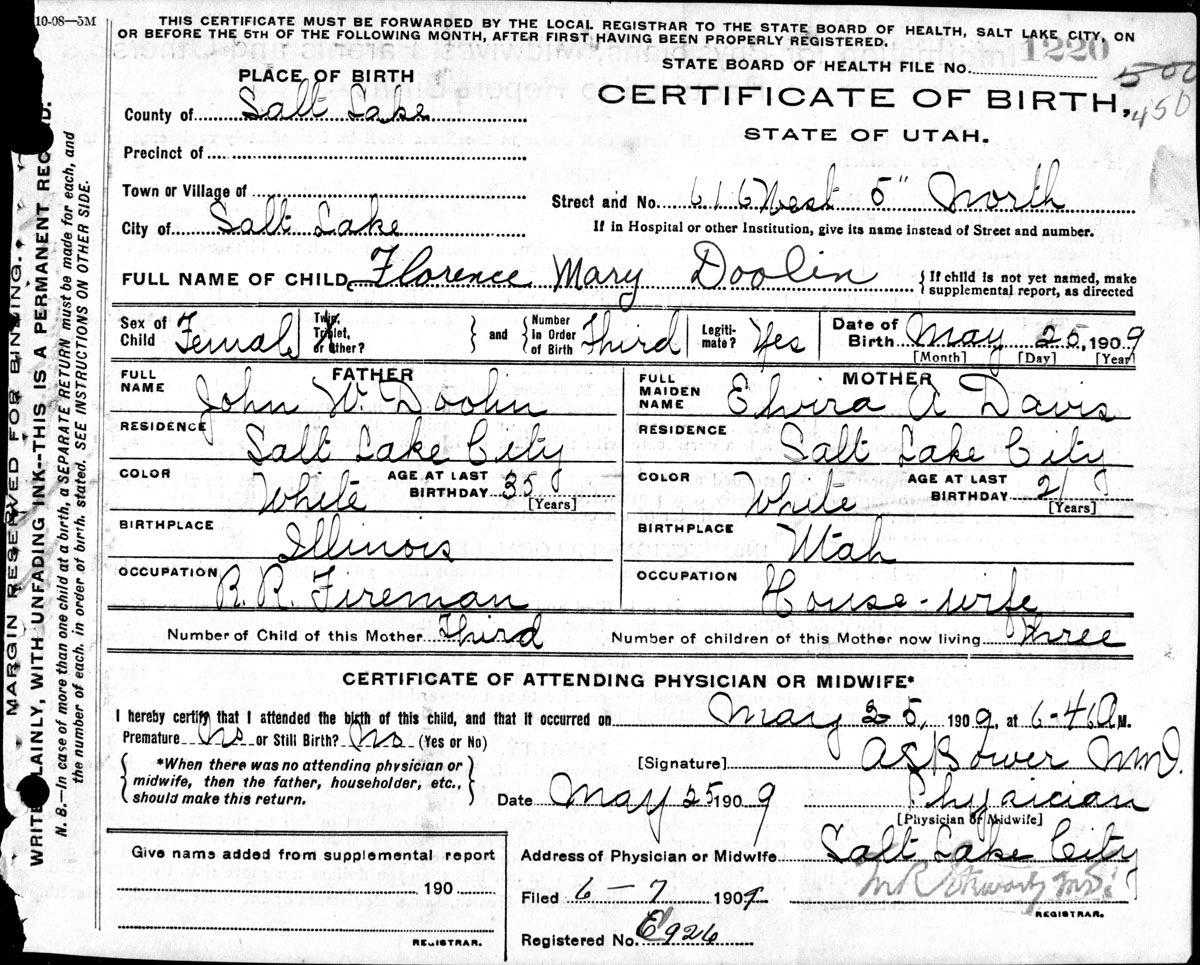 10-08—5M
THIS CERTIFICATE MUST BE FORWARDED BY THE LOCAL REGISTRAR TO THE STATE BOARD OF HEALTH, SALT LAKE CITY, ON
OR BEFORE THE 5TH OF THE FOLLOWING MONTH, AFTER FIRST HAVING BEEN PROPERLY REGISTERED.
STATE BOARD OF HEALTH FILE No. 1220
500
450
PLACE OF BIRTH
CERTIFICATE OF BIRTH,
STATE OF UTAH.
County of Salt Lake
Precinct of
Town or Village of
Street and No. 616 West 5" North
City of Salt Lake
If in Hospital or other Institution, give its name instead of Street and number.
FULL NAME OF CHILD Florence Mary Doolin { If child is not yet named, make supplemental report, as directed
Sex of Child Female
Twin, Triplet, or Other? } and { Number in Order of Birth Third
Legitimate? Yes
Date of Birth May 25, 1909
[Month] [Day] [Year]
FATHER
FULL NAME John W. Doolin
RESIDENCE Salt Lake City
COLOR White AGE AT LAST BIRTHDAY 35
[Years]
BIRTHPLACE Illinois
OCCUPATION R. R. Fireman
MOTHER
FULL MAIDEN NAME Elvira A Davis
RESIDENCE Salt Lake City
COLOR White AGE AT LAST BIRTHDAY 21
[Years]
BIRTHPLACE Utah
OCCUPATION House-wife
Number of Child of this Mother Third Number of children of this Mother now living three
CERTIFICATE OF ATTENDING PHYSICIAN OR MIDWIFE*
I hereby certify that I attended the birth of this child, and that it occurred on May 25, 1909, at 6-46 A M.
Premature No or Still Birth? No (Yes or No)
{ *When there was no attending physician or
midwife, then the father, householder, etc.,
should make this return. }
[Signature] A S Bower M.D.
Date May 25 1909 Physician
[Physician or Midwife]
Give name added from supplemental report
190
REGISTRAR.
Address of Physician or Midwife Salt Lake City
Filed 6 – 7 1909
M R Stewart M.D.
REGISTRAR.
Registered No. E926
MARGIN RESERVED FOR BINDING.
WRITE PLAINLY, WITH UNFADING INK--THIS IS A PERMANENT RECORD.
N. B.—In case of more than one child at a birth, a SEPARATE RETURN must be made for each, and
the number of each, in order of birth, stated. SEE INSTRUCTIONS ON OTHER SIDE.